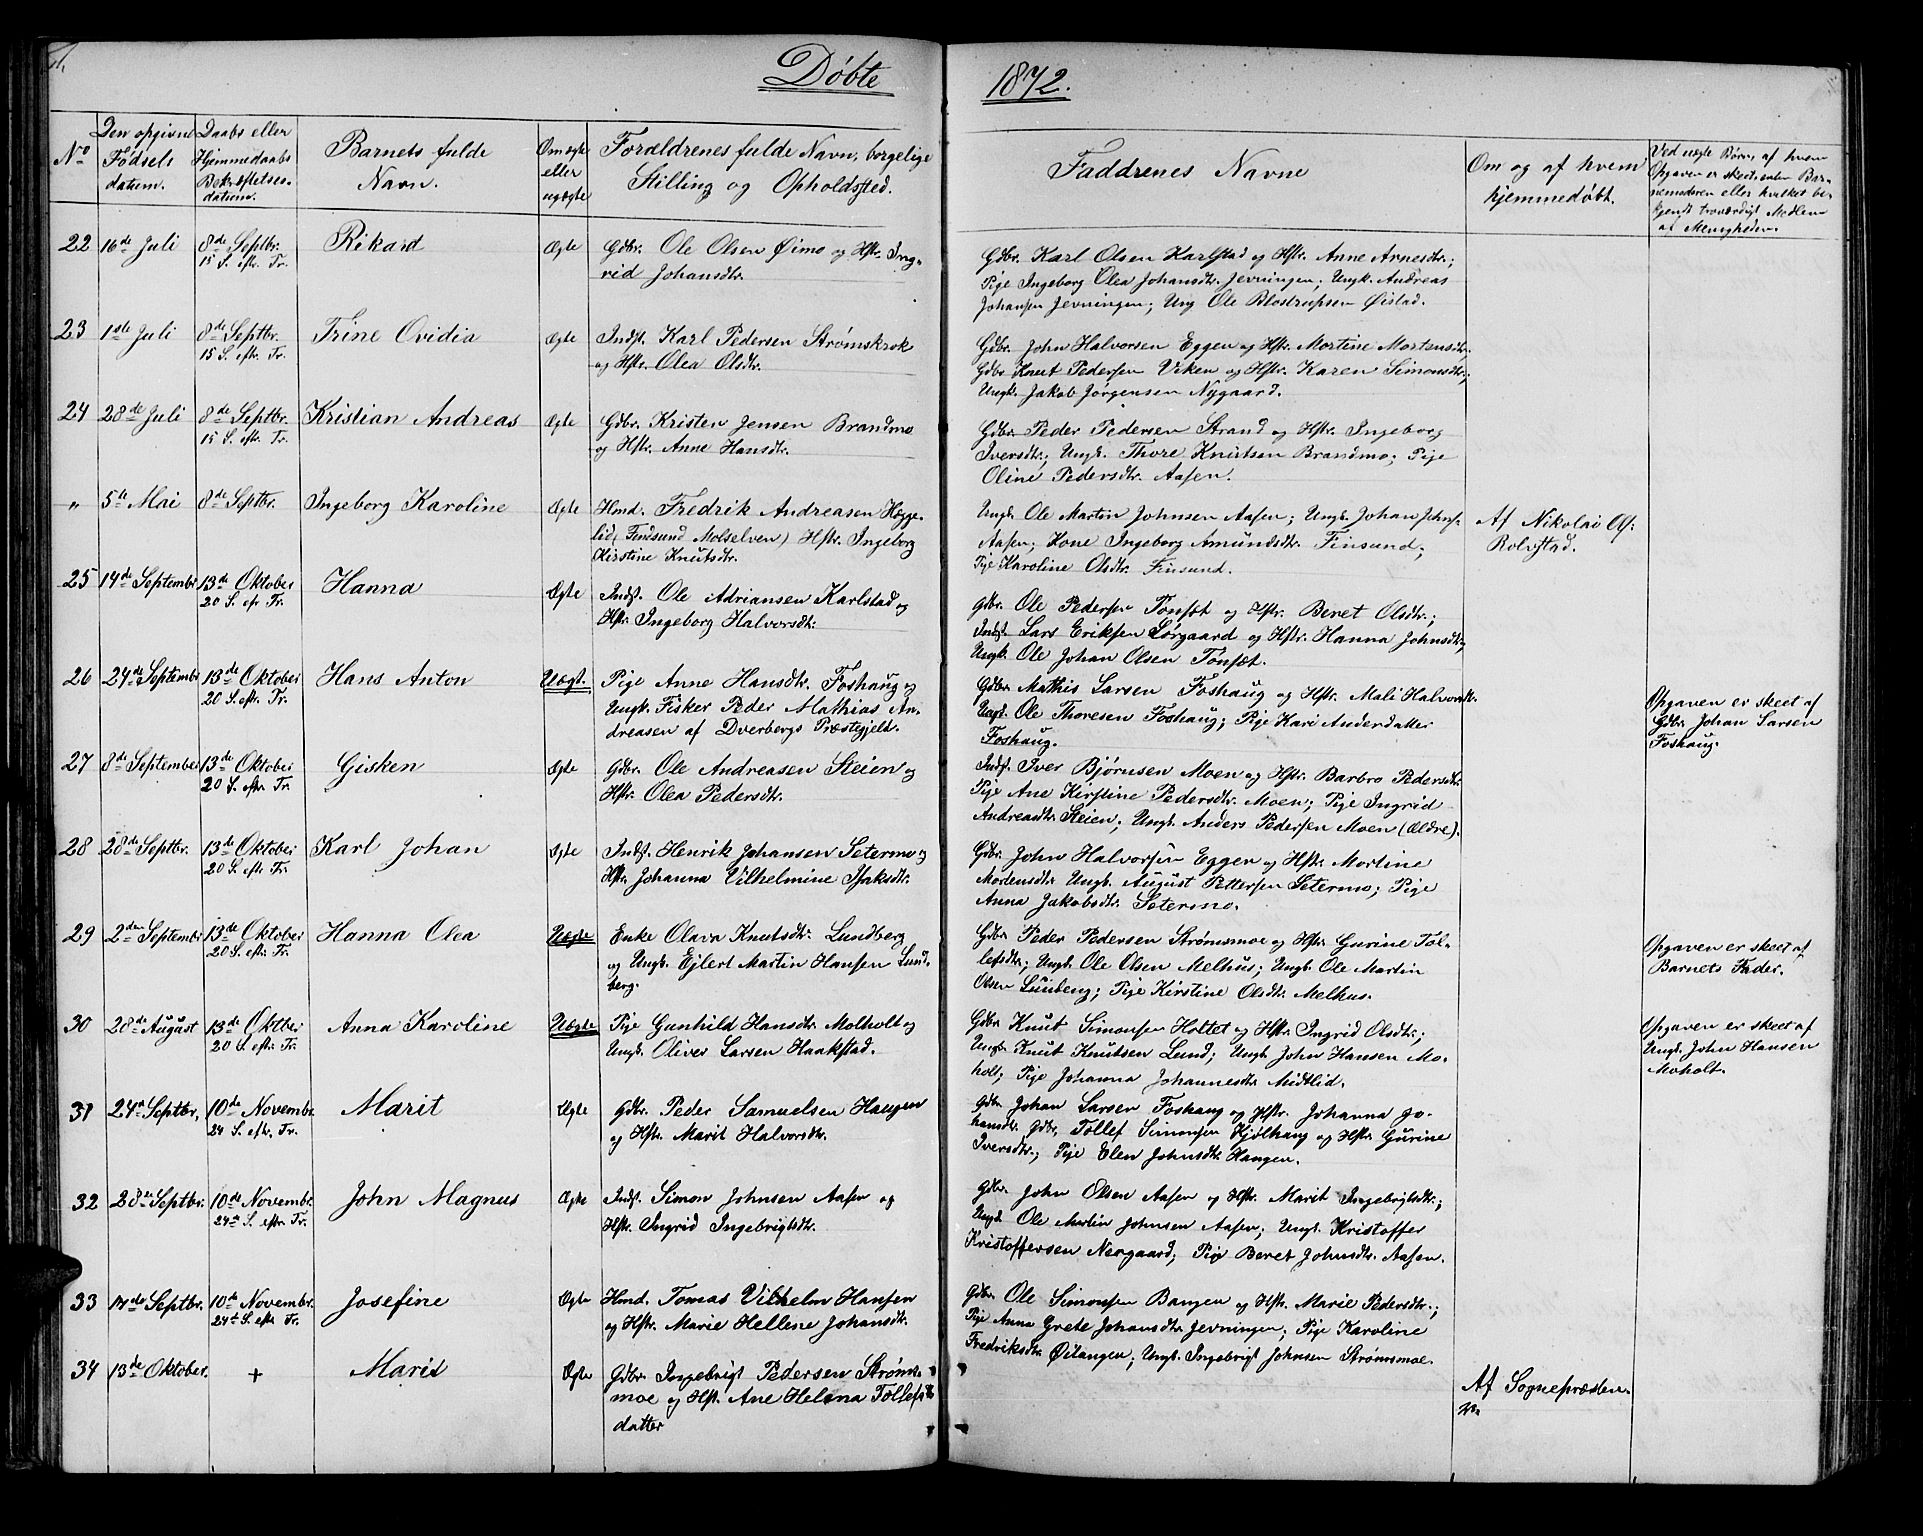 Døbte
1872.
No
Den opgivne
Fødsels
datum.
Daabs eller
Hjemmedaabs
Bekræftelses-
datum.
Barnets fulde
Navn.
Om ægte
eller
uægte
Forældrenes fulde Navn, borgelige
Stilling og Opholdssted.
Faddrenes Navne
Om og af hvem
hjemmedøbt.
Ved uægte Børn, af hvem
Opgaven er skeet, enten Bar-
nemoderen eller hvilket be-
kjendt troværdigt Medlem
af Menigheden.
22 16de Juli 8de Septbr. Rikard Ægte Gdbr. Ole Olsen Øimo og Hstr. Ing-
15 S. eftr. Tr. rid Johansdtr.
Gdbr. Karl Olsen Karlstad og Hstr. Anne Arnesdtr.;
Pige Ingeborg Olea Johansdtr. Jevningen; Ungk. Andreas
Johansen Jevningen; Ung Ole Blostrupsen Øistad.
23 1ste Juli 8de Septbr. Trine Ovidia Ægte Indst. Karl Pedersen Strømskrok
15 S. eftr. Tr. og Hstr. Olea Olsdtr.
Gdbr. John Halvorsen Eggen og Hstr. Mortine Mortensdtr.;
Gdbr Knut Pedersen Viken og Hstr. Karen Simonsdtr.;
Ungk. Jakob Jørgensen Nygaard.
24 28de Juli 8de Septbr. Kristian Andreas Ægte Gdbr. Kristen Jensen Brandmo
15 S. eftr. Tr. og Hstr. Anne Hansdtr.
Gdbr. Peder Pedersen Strand og Hstr. Ingeborg
Iversdtr.; Ungk. Thore Knutsen Brandmo; Pige
Oline Pedersdtr. Aasen.
" 5te Mai 8de Septbr. Ingeborg Karoline Ægte Hmd. Fredrik Andreasen Hegge-
lid, Findsund Molselven) Hstr. Ingeborg
Kirstine Knutsdtr.
Ungk. Ole Martin Johnsen Aasen; Ungk. Johan Johns.
Aasen; Kone Ingeborg Amundsdtr. Finsund;
Pige Karoline Olsdtr. Finsund.
Af Nikolai Ol:
Rolvstad.
25 14de Septembr 13de Oktober Hanna Ægte Indst. Ole Adriansen Karlstad og
20 S. eftr Tr. Hstr. Ingeborg Halvorsdtr.
Gdbr. Ole Pedersen Tonset og Hstr. Beret Olsdtr.;
Indst. Lars Eriksen Sørgaard og Hstr. Hanna Johnsdtr.;
Ungk. Ole Johan Olsen Tonset.
26 24de Septembr 13de Oktober Hans Anton Uægt. Pige Anne Hansdtr. Foshaug og
20 S. eftr. Tr. Ungk. Fisker Peder Mathias An-
dreasen af Dverbergs Præstegjeld.
Gdbr. Mathis Larsen Foshaug og Hstr. Mali Halvorsdtr.
Ungk. Ole Thoresen Foshaug; Pige Kari Andersdatter
Foshaug.
Opgaven er skeet af
Gdbr. Johan Larsen
Foshaug.
27 8de September 13de Oktober Gisken Ægte Gdbr. Ole Andreasen Steien og
20 S. eftr. Tr. Hstr. Olea Pedersdtr.
Indst. Iver Bjørnsen Moen og Hstr. Barbro Pedersdtr.
Pige Ane Kirstine Pedersdtr. Moen; Pige Ingrid
Andreasdtr. Steien; Ungk. Anders Pedersen Moen (ældre).
28 28de Septbr. 13de Oktober Karl Johan Ægte Indst. Henrik Johansen Setermo og
20 S. eftr. Tr. Hstr. Johanna Vilhelmine Isaksdtr.
Gdbr. John Halvorsen Eggen og Hstr. Mortine
Mortensdtr. Ungk. August Pettersen Setermo; Pige
Anna Jakobsdtr. Setermo.
29 2den Septembr 13de Oktober Hanna Olea Uægte Enke Olava Knutsdtr. Lundberg
20 S. eftr. Tr. og Ungk. Ejlert Martin Hansen Lund-
berg.
Gdbr. Peder Pedersen Strømsmoe og Hstr. Gurine Tol-
lefsdtr.; Ungk. Ole Olsen Melhus; Ungk. Ole Martin
Olsen Lunberg; Pige Kirstine Olsdtr. Melhus.
Opgaven er skeet af
Barnets Fader.
30 28de August 13de Oktber Anna Karoline Uægte Pige Gunhild Hansdtr. Moholt og
20 S. eftr. Tr. Ungk. Oliver Larsen Haakstad.
Gdbr. Knut Simonsen Holtet og Hstr. Ingrid Olsdtr.;
Ungk. Knut Knutsen Lund; Ungk. John Hansen Mo-
holt; Pige Johanna Johannesdtr. Midtlid.
Opgaven er skeet af
Ungk. John Hansen
Moholt.
31 24de Septbr. 10de Novembr. Marit Ægte Gdbr. Peder Samuelsen Haugen
24 S. eftr. Tr. og Hstr. Marit Halvorsdtr.
Gdbr. Johan Larsen Foshaug og Hstr. Johanna Jo-
hansdtr. Gdbr. Tollef Simonsen Kjølhaug og Hstr. Gurine
Iversdtr.; Pige Elen Johnsdtr. Haugen.
32 28de Septbr. 10de Novembr. John Magnus Ægte Indst. Simon Johnsen Aasen og
24de S. eftr. Tr. Hstr. Ingrid Ingebrigtsdtr.
Gdbr. John Olsen Aasen og Hstr. Marit Ingebrigtsdtr.;
Ungk. Ole Martin Johnsen Aasen; Ungk. Kristoffer
Kristoffersen Nergaard; Pige Beret Johnsdtr. Aasen.
33 17de Septbr. 10de Novembr. Josefine Ægte Hmd. Tomas Vilhelm Hansen
24de S. eftr. Tr. og Hstr. Marie Hellene Johansdtr.
Gdbr. Ole Simonsen Bangen og Hstr. Marie Pedersdtr.;
Pige Anna Grete Johansdtr. Jevningen; Pige Karoline
Fredriksdtr. Øilangen; Ungk. Ingebrigt Johnsen Strømsmoe.
34 13de Oktober. + Marit Ægte Gdbr. Ingebrigt Pedersen Strøms-
moe og Hstr. Ane Helena Tollefs-
datter
Af Sognepræsten.